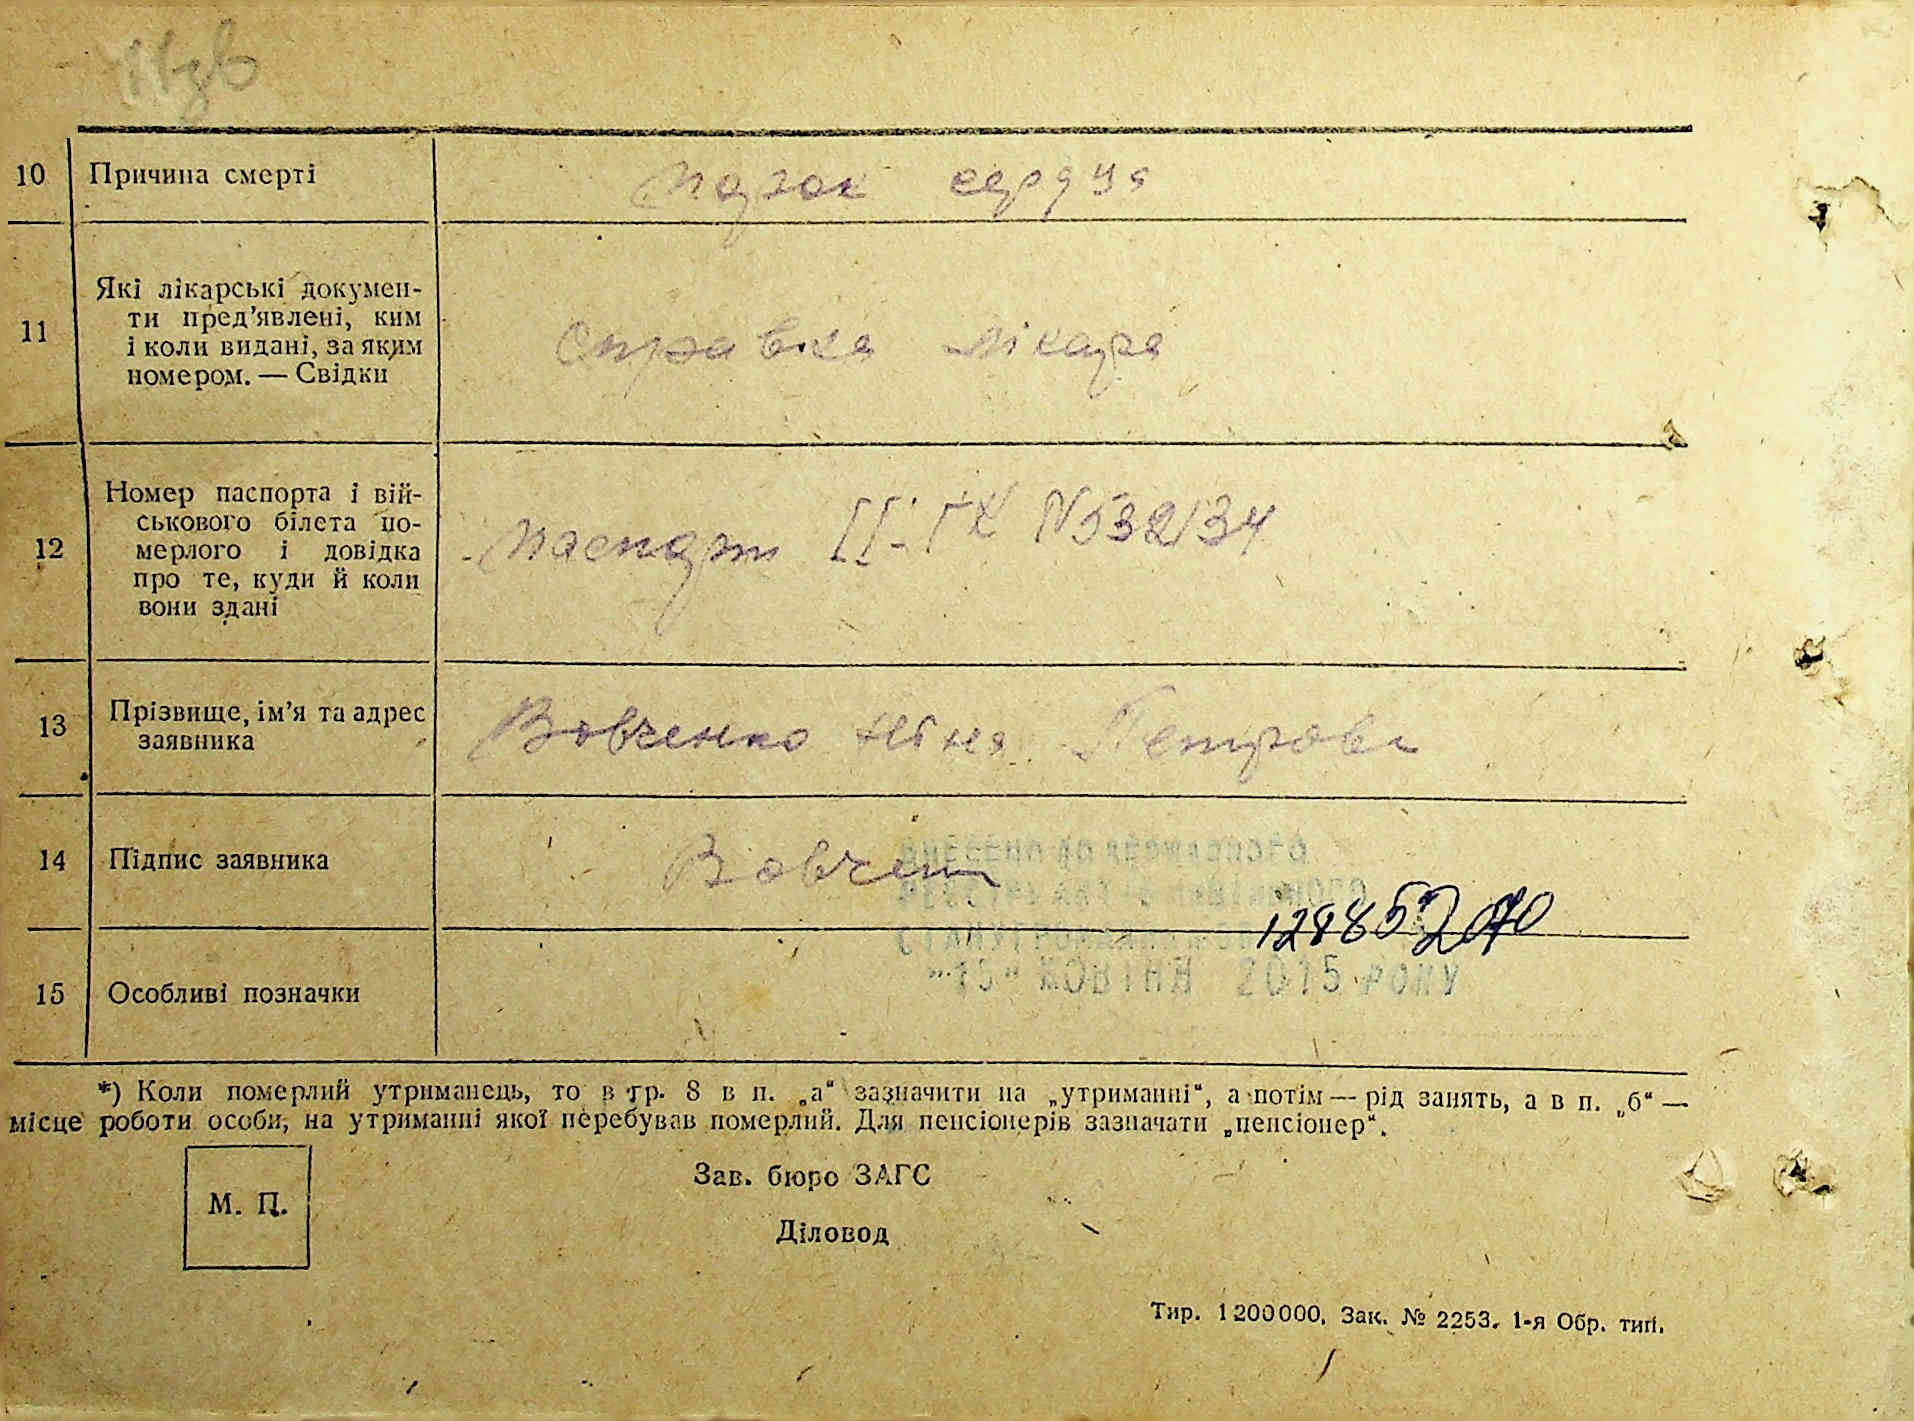 10 Причина смерті
сердця
11 Які лікарські докумен-
ти пред’явлені, ким
і коли видані, за яким
номером. — Свідки
Справка лікаря
12 Номер паспорта і вій-
ськового білета по-
мерлого і довідка
про те, куди й коли
вони здані
Паспорт II-ГК N532134
13 Прізвище, ім’я та адрес
заявника
Вовченко Ніна Петровн
14 Підпис заявника
Вовчен
ВНЕСЕНО ДО ДЕРЖАВНОГО
РЕЄСТРУ АКТІВ ЦИВІЛЬНОГО
СТАНУ ГРОМАДЯН
"15" ЖОВТНЯ 2015 РОКУ
15 Особливі позначки
*) Коли померлий утриманець, то в гр. 8 в п. „а“ зазначити на „утриманні“, а потім — рід занять, а в п. „б“ —
місце роботи особи, на утриманні якої перебував померлий. Для пенсіонерів зазначати „пенсіонер“.
М. П.
Зав. бюро ЗАГС
Діловод
Тир. 1200000. Зак. № 2253. 1-я Обр. тип.